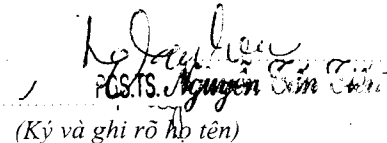 PGS.TS. Nguyễn Tấn Tiến
(Ký và ghi rõ họ tên)